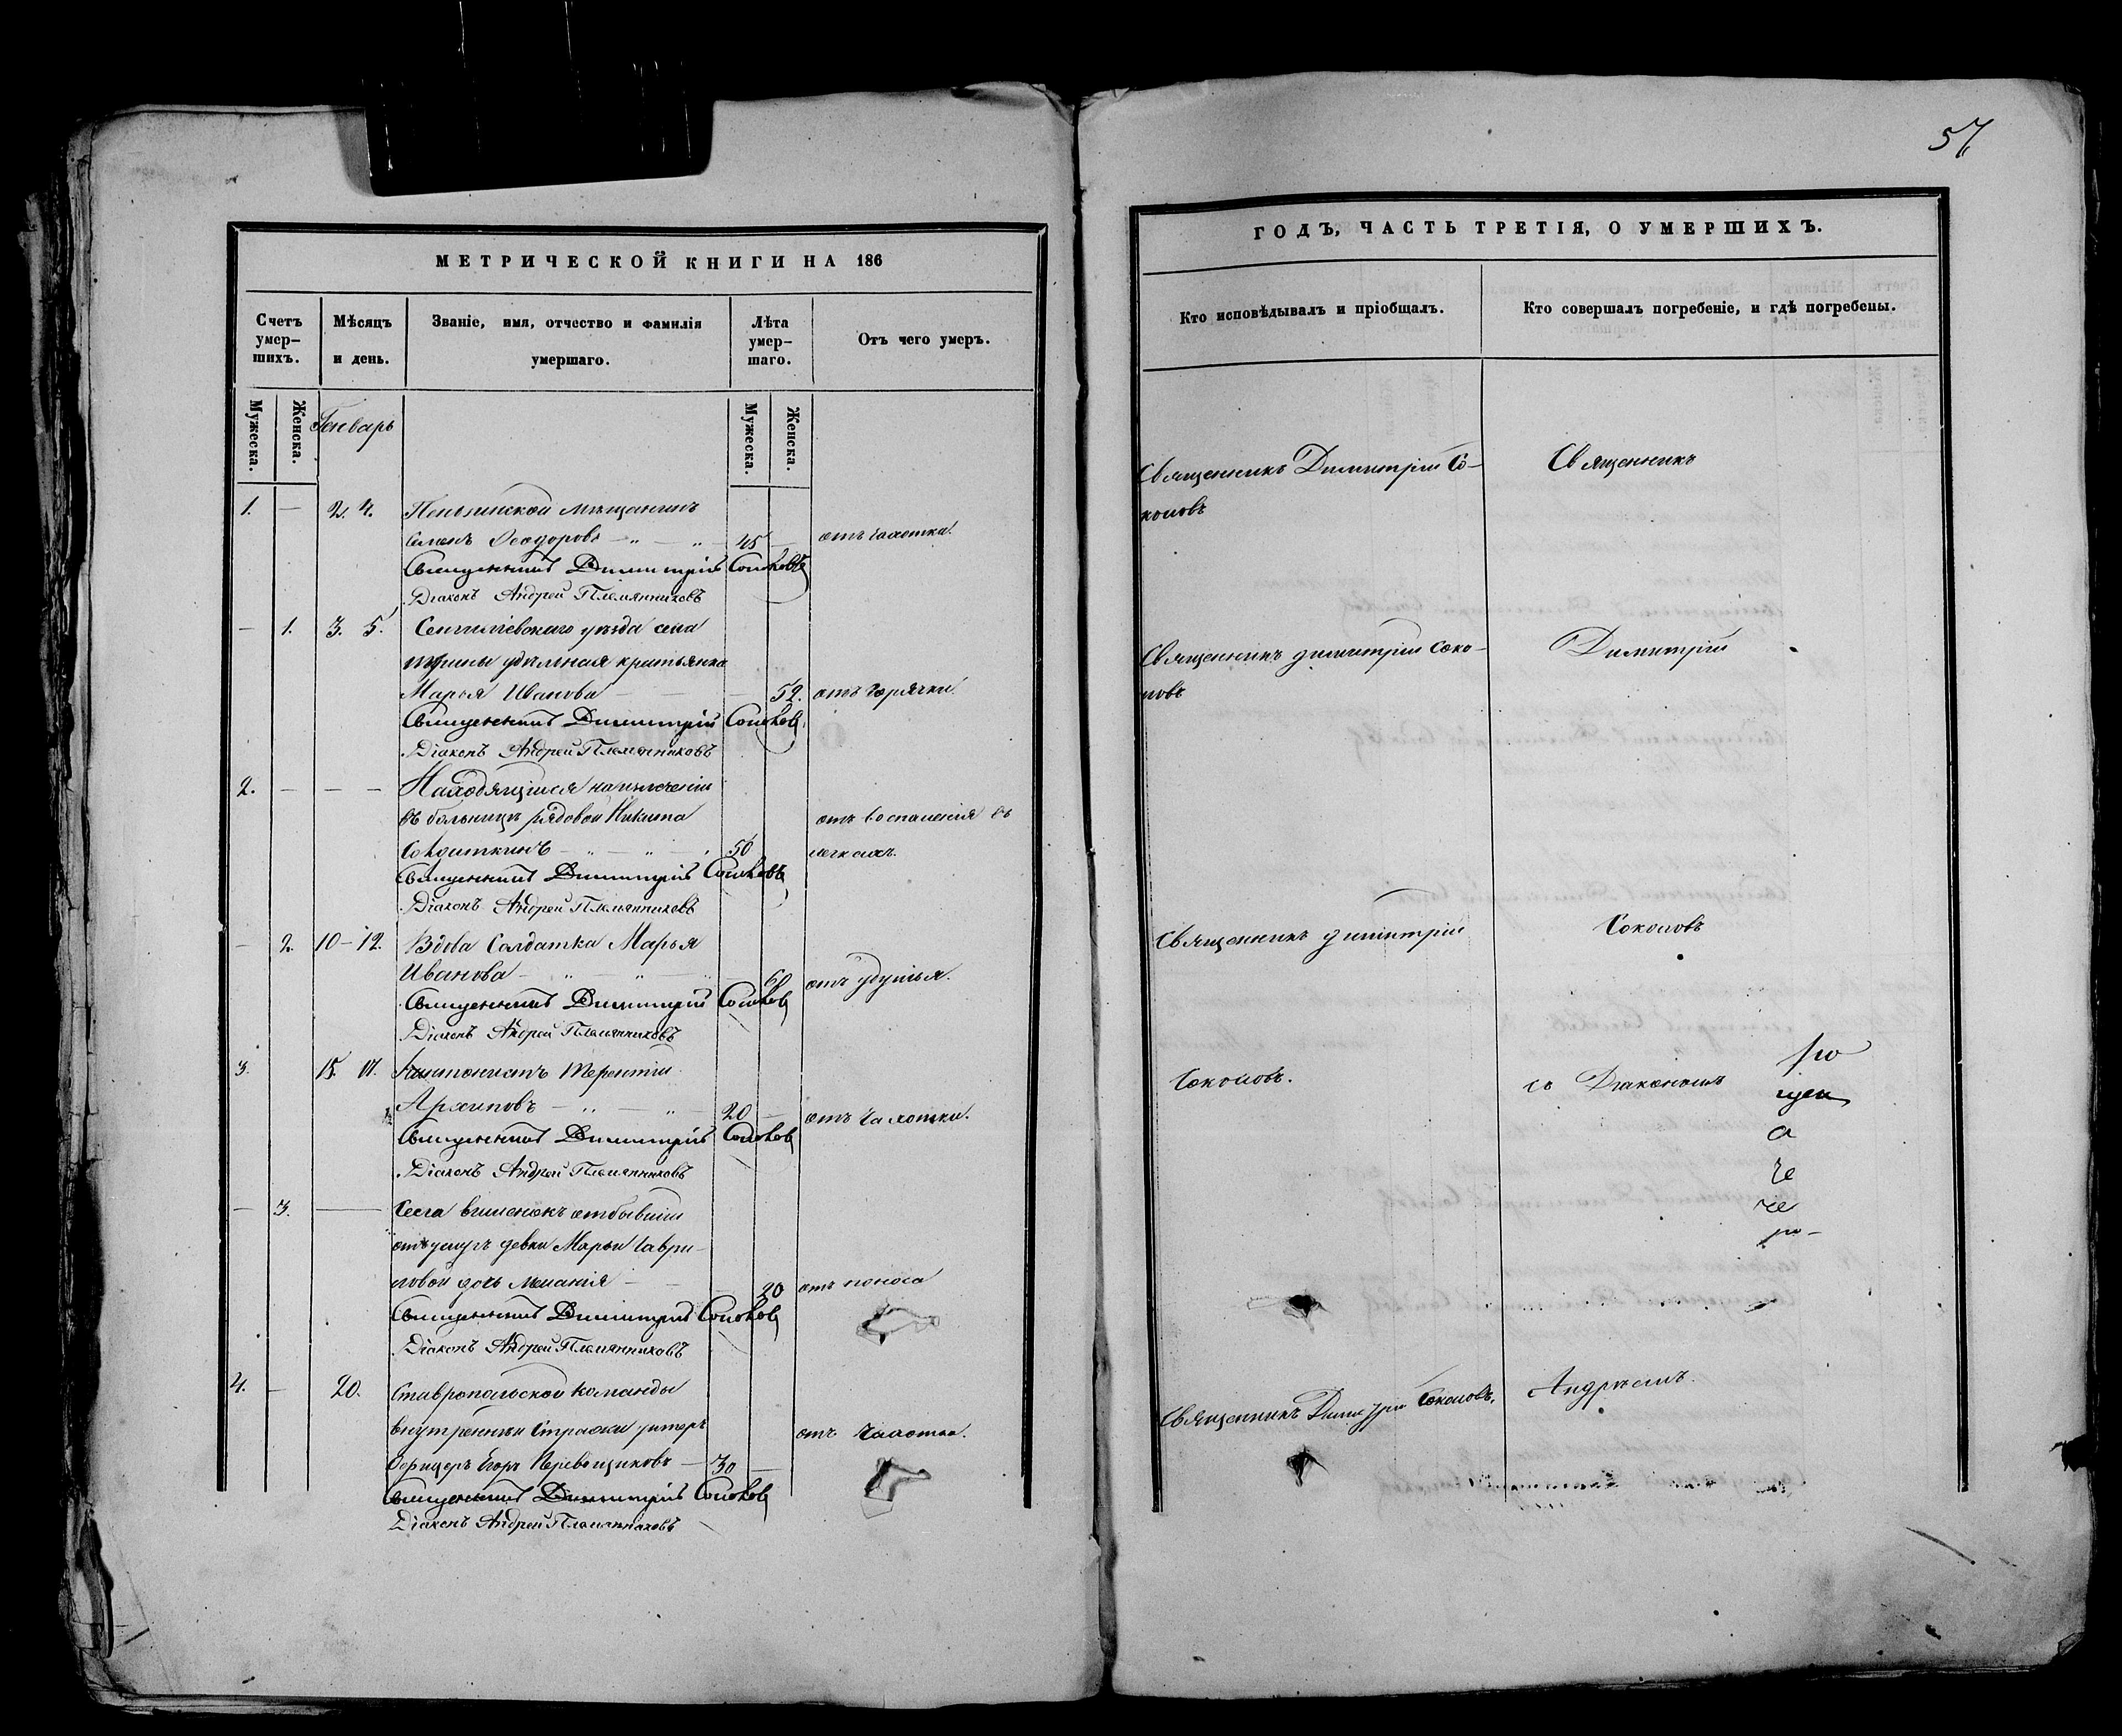 МЕТРИЧЕСКОЙ КНИГИ НА 186
Счетъ умер-шихъ.
Мѣсяцъ и день.
Званіе, имя, отчество и фамилія умершаго.
Лѣта умер-шаго.
Отъ чего умеръ.
Мужеска.
Женска.
Генварь
Мужеска.
Женска.
1. — 2. 4. мѣщанинъ
Семенъ Ѳеодоровъ — " — " — 45 — отъ чахотки.
Священникъ Димитрій Соколовъ
Діаконъ Андрей Племянниковъ
— 1. 3. 5. Сенгилѣевскаго уѣзда села
удѣльная крестьянка
Марья Иванова — — — 52. отъ горячки.
Священникъ Димитрій Соколовъ
Діаконъ Андрей Племянниковъ
2. — — — Находящійся на излеченіи
въ больницѣ рядовой Никита отъ воспаленія въ
— " — " — 50 легкихъ.
Священникъ Димитрій Соколовъ
Діаконъ Андрей Племянниковъ
— 2. 10 — 12. Вдова Солдатка Марья
Иванова — " — " — " — 60 отъ удушья.
Священникъ Димитрій Соколовъ
Діаконъ Андрей Племянниковъ
3. 15. 17. Кантонистъ Терентій
Архиповъ — " — " — 20 — отъ чахотки.
Священникъ Димитрій Соколовъ
Діаконъ Андрей Племянниковъ
— 3. — Села
девки Марьи Гаври-
ловой дочь Меланія — — 20 отъ поноса
Священникъ Димитрій Соколовъ
Діаконъ Андрей Племянниковъ
4. — 20. Ставропольской команды
внутренней Стражи унтеръ отъ чахотки.
офицеръ Егоръ Перевощиковъ — 30 —
Священникъ Димитрій Соколовъ
Діаконъ Андрей Племянниковъ
57
ГОДЪ, ЧАСТЬ ТРЕТІЯ, О УМЕРШИХЪ.
Кто исповѣдывалъ и пріобщалъ.
Кто совершалъ погребеніе, и гдѣ погребены.
Священникъ Димитрій Со- Священникъ
коловъ
Священникъ Димитрій Соко- Димитрій
ловъ
Священникъ Димитрій Соколовъ
Соколовъ. съ Діакономъ
Священникъ Димитрій Соколовъ. Андреемъ.